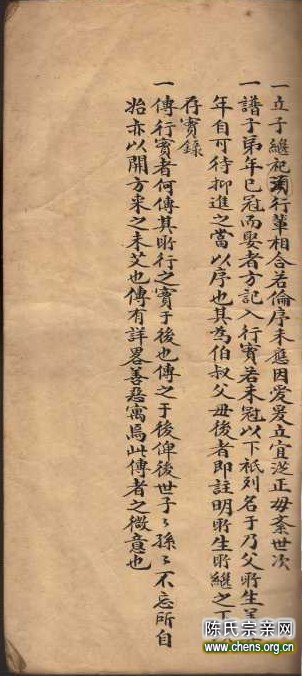 一立子繼祀須行輩相合若倫序未應因愛晜立宜從正毋紊世次
一譜子弟年已冠而娶者方記入行實若未冠以下祇列名于乃父所生
年自可待抑進之當以序也其為伯叔父毋後者即註明所生所繼之下
存實錄
一傳行實者何傳其所行之實于後也傳之于後俾後世子〻孫〻不忘所自
始亦以開方來之未艾也傳有詳畧善惡寓焉此傳者之微意也
陈氏宗亲网
www.chens.org.cn